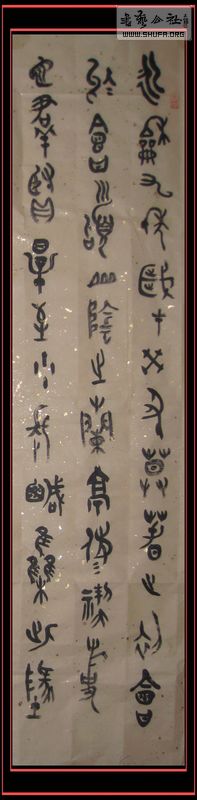 書藝公社
WWW.SHUFA.ORG
永龢九年歲在癸丑莫春之初會
于會稽山陰之蘭亭修禊事
也群賢畢至少長咸集此地